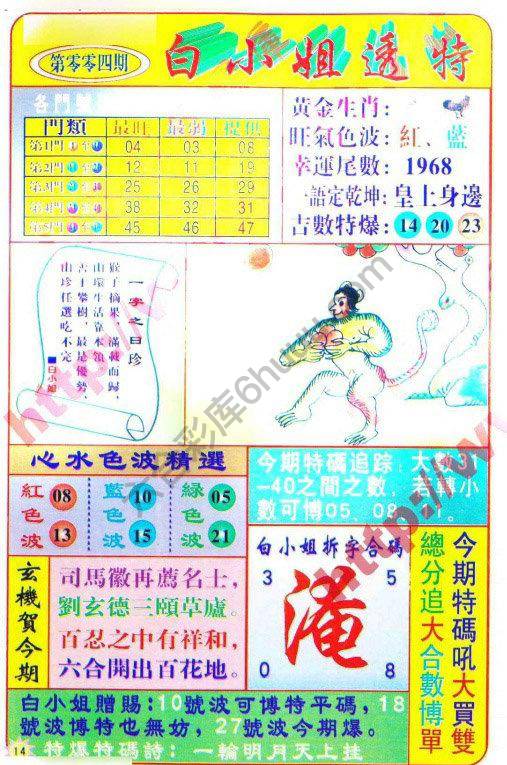 第零零四期
白小姐透特
各門
門類 最旺 最弱 提供
第1門 04 03 08
第2門 12 11 19
第3門 25 26 29
第4門 38 32 31
第5門 45 46 47
黃金生肖:
旺氣色波:紅、藍
幸運尾數: 1968
一語定乾坤:皇上身邊
吉數特爆:14 20 23
一字之曰珍
猴子摘果滿載而歸,
山環生活靠本領
善于攀樹,最是優勢,
山珍任選吃不完
■白小姐
心水色波精選
紅色波 08 13
藍色波 10 15
綠色波 05 21
今期特碼追踪:大數31
-40之間之數,若轉小
數可博05、08、
白小姐拆字合碼
3 5
淹
0 8
今期特碼吼大買雙
總分追大合數博單
玄機賀今期
司馬徽再薦名士,
劉玄德三頤草廬。
百忍之中有祥和,
六合開出百花地。
白小姐贈賜:10號波可博特平碼,18
號波博特也無妨,27號波今期爆。
14 特爆特碼詩:一輪明月天上挂
六合彩库6huuu.com
http://w
http://w